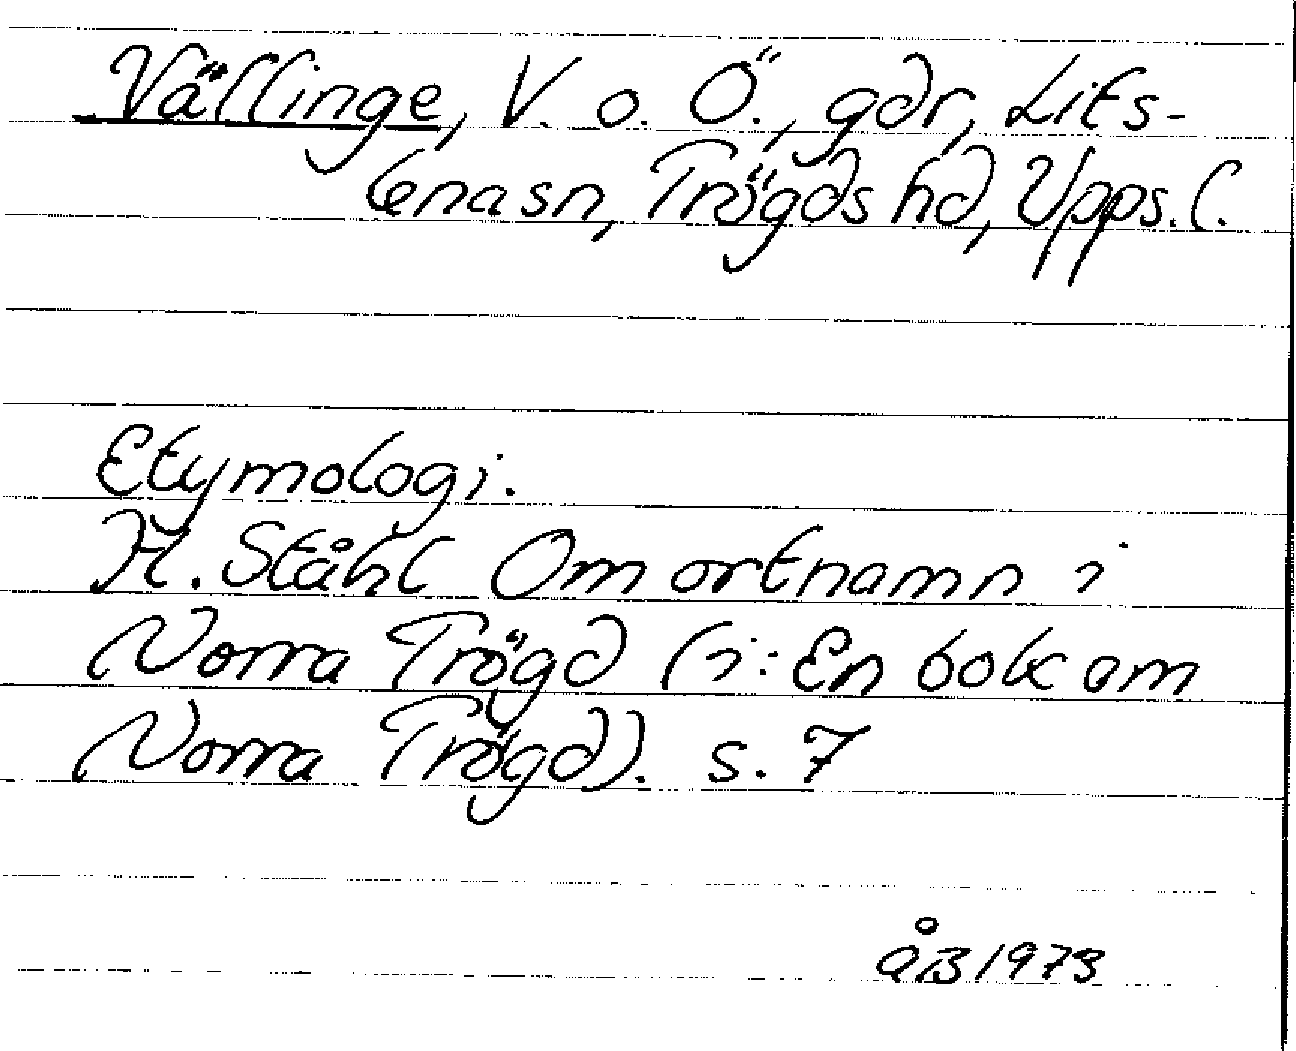 Vällinge, V. o. Ö., gdr, Lits-
lena sn, Trögds hd, Upps. l.
Etymologi.
H. Ståhl Om ortnamn i
Norra Trögd (i: En bok om
Norra Trögd). s. 7
ÅB 1973